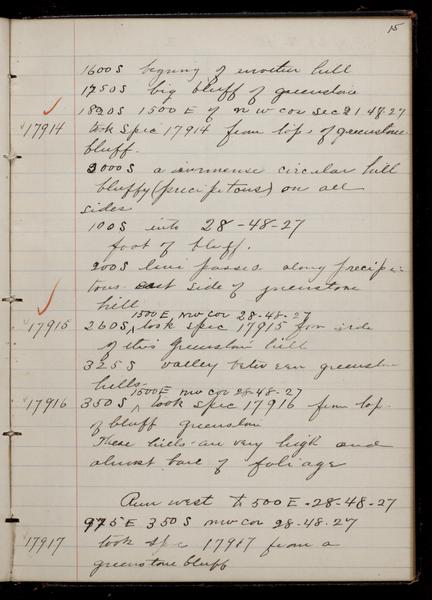 15
1600 S begning of another hill
1750 S big bluff of greenstone
1820 S 1500 E of n w cor sec 21 48-27
17914 took spec 17914 from top of greenstone
bluff.
2000 S a immense circular hill
bluffy (precipitous) on all
sides
100 S into 28-48-27
foot of bluff.
200 S line passes along precipi-
tous east side of greenstone
hill
1500 E nw cor 28-48-27
17915 260 S took spec 17915 from side
of this greenstone hill
325 S valley between greenston
hills
1500 E nw cor 28-48-27
17916 350 S took spec 17916 from top
of bluff greenston
These hills are very high and
almost bare of foliage
Run west to 500 E - 28-48-27
975 E 350 S nw cor 28-48-27
17917 took spc 17917 from a
greenstone bluff